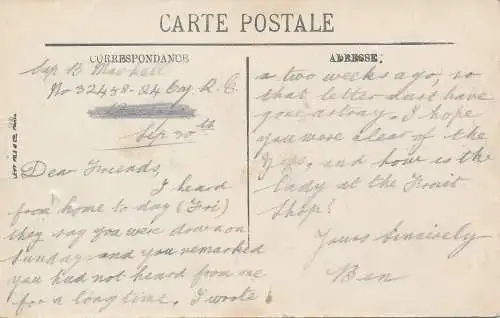 CARTE POSTALE
CORRESPONDANCE
ADRESSE
Sap B
No 32458 - 24 Coy. R.E.
Sep 30th
Dear Friends,
I heard
from home to day (Fri)
they say you were down on
Sunday and you remarked
you had not heard from me
for a long time. I wrote
a two weeks ago, so
that letter must have
gone astray. I hope
you were clear of the
Zeps, and how is the
lady at the Fruit
Shop!
Yours Sincerely
Ben